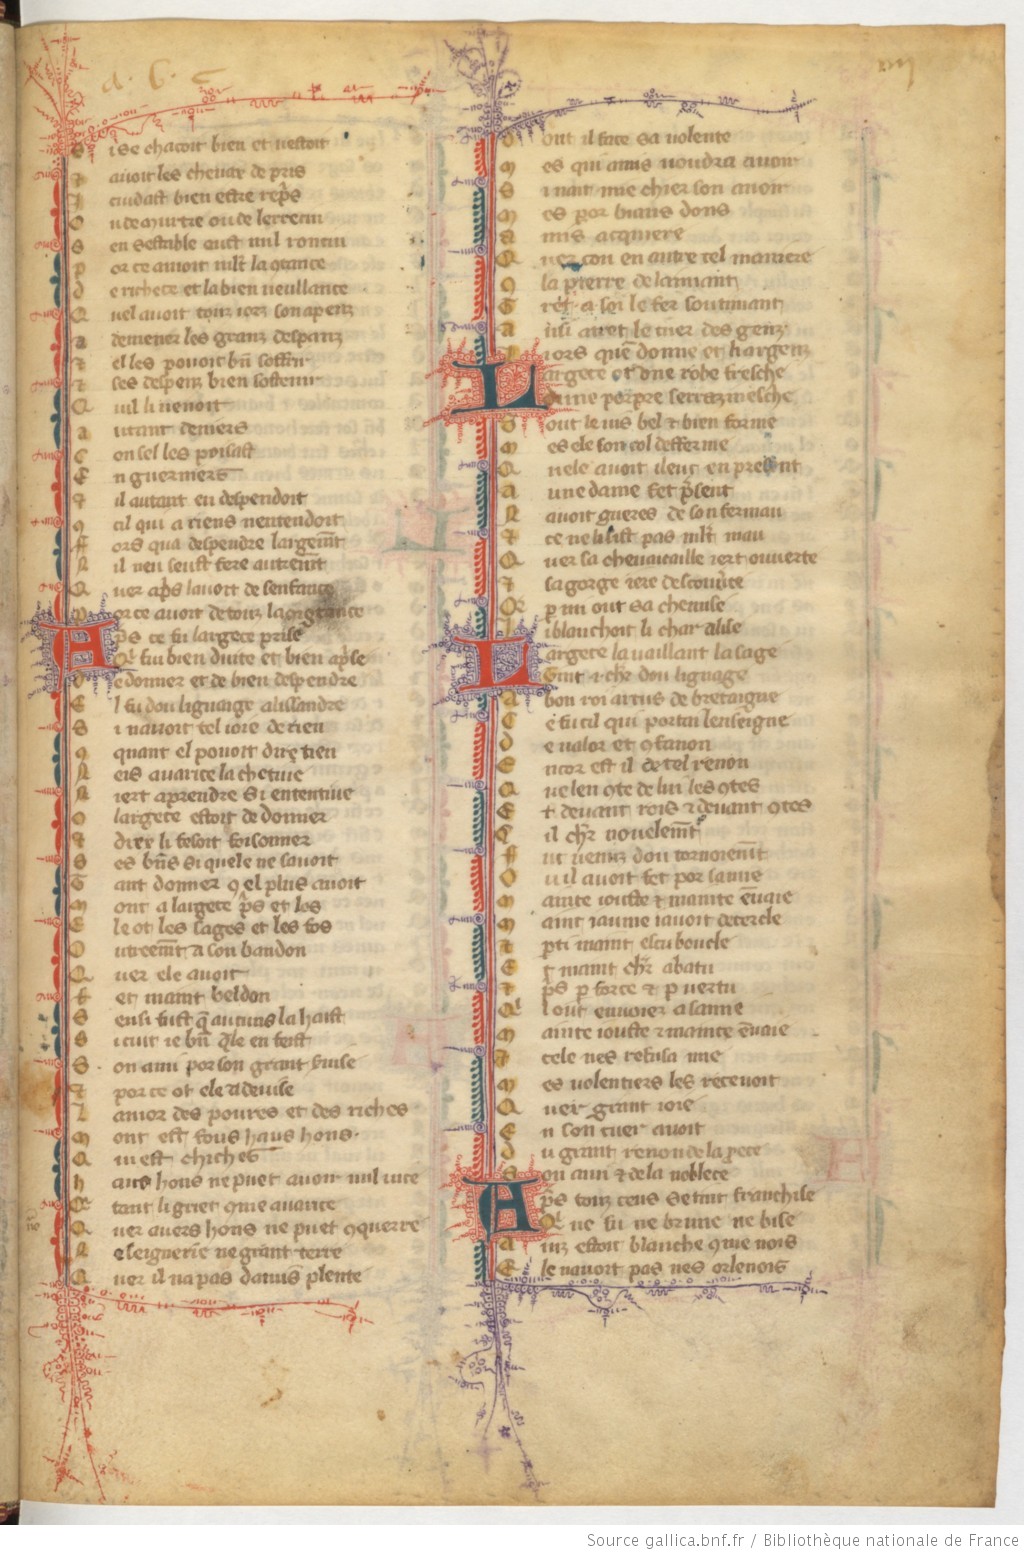 a. b. c
iiij
S i se chacoit bien et vestoit
Et avoit les chevax de pris
Il cuidast bien estre repris
O u de murtre ou de lerrecin
S en sestable eust mil roncin
P or ce avoit mlt la gtance
d e richece et la bien veullance
Q uel avoit touz iorz son apenz
a demener les granz despanz
Et el les pooit bn soffrir
Et ses despenz bien sostenir
Q uil li venoit
a utant deniers
C on sel les poisast
E n guerniers
Et il autant en despendoit
9 cil qui a riens nentendoit
ff ors qua despendre largemt
N il nen seust fere autremt
Q uer aps lavoit de senfance
P or ce avoit de touz la gtance
A ps ce fu largece prise
Q fu bien duite et bien aprise
D e donner et de bien despendre
E l fu dou lignaige alixandre
S i navoit tel ioie de rien
9 quant el pooit dire tien
N eis avarice la chetive
N iert aprendre si ententive
O largece estoit de donner
Et diex li fesoit foisonner
S es bns si quele ne savoit
T ant donner q el plus avoit
M ont a largece ps et los
E le ot les sages et les fos
O utreemt a son bandon
Q uer ele avoit
F et maint bel don
S ensi fust q aucuns la haist
S i cuit ie bn qle en feist
S on ami por son grant servise
Et por ce ot ele a devise
L amor des povres et des riches
M ont est fous haus hons.
Q ui est chiches
h aus hons ne puet avoir nul vice
Q tant li griet que avarice
Q uer avers hons ne puet gquerre
N e seignerie ne grant terre
Q uer il na pas damis plente
D ont il face sa volente
M es qui amis voudra avoir
S i nait mie chier son avoir
M es por biaus dons
A mis acquiere
Q uer con en autre tel maniere
9 la pierre de laimant
T ret a soi le fer soutimant
A insi atret le cuer des genz
L iors que donne et li argenz
L argece ot une robe fresche
dune porpre serrazinesche
S out le vis bel et bien forme
M es ele son col defferme
Q uele avoit ileuc en present
A une dame fet psent
N avoit gueres de son fermau
Et ce ne li sist pas mlt mau
Q uer sa chevecaille iert ouverte
Et sa gorge iere descouvte
Q p mi out sa chemise
L i blanchoit li char alise
L argece la vaillant la sage
Tint i chr dou lignage
A bon roi artus de bretaigne
C e fu cil qui porta lenseigne
d e valor et gfanon
E ncor est il de tel renon
Q ue len gte de lui les gtes
E t devant rois et devant gtes
C il chr novelemt
ff ut venuz dou tornoiemt
O u il avoit fet por samie
M ainte iouste et mainte envaie
M aint iaume i avoit decercle
Et pti maint escu boucle
E t maint chr abatu
Et ps p force et p vertu
Q l out envoier a samie
M ainte iouste et mainte envaie
Et cele nes refusa mie
M es volentiers les recevoit
Q uer grant ioie
E n son cuer avoit
d u grant renon de la proece
S on ami et de la noblece
A ps touz ceus se tint franchise
Q ne fu ne brune ne bise
A inz estoit blanche gme nois
E le navoit pas nes orlenois
Source gallica.bnf.fr / Bibliothèque nationale de France